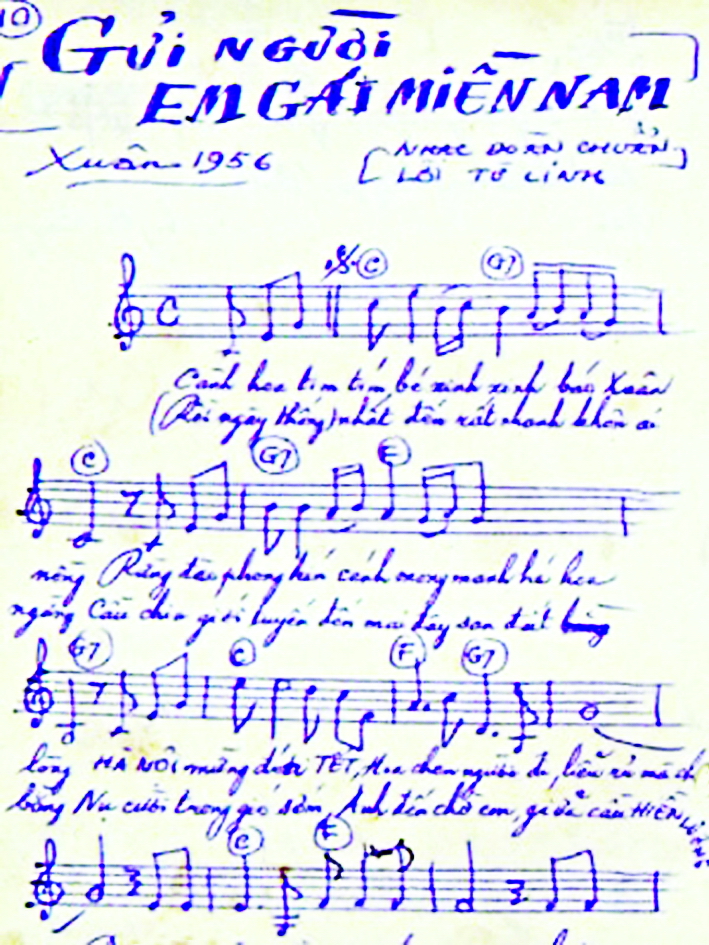 10
GỬI NGƯỜI
EM GÁI MIỀN NAM
Xuân 1956
[NHẠC ĐOÀN CHUẨN]
LỜI TỪ LINH
C G7
C
Cành hoa tim tím bé xinh xinh báo Xuân
(Rồi ngày thống) nhất đến rất nhanh không ai
C G7 E
nồng Rừng đào phong kín cánh mong manh hé hoa
ngăng Cầu chia giới tuyến đến mai đây san đất
G7 C F G7
lòng HÀ NỘI mừng đón TẾT, Hoa chen người đi, liễu rủ mà ch
bằng Nụ cười trong gió sớm, Anh đến chờ em, giữa cầu HIỀN LƯƠNG
C F